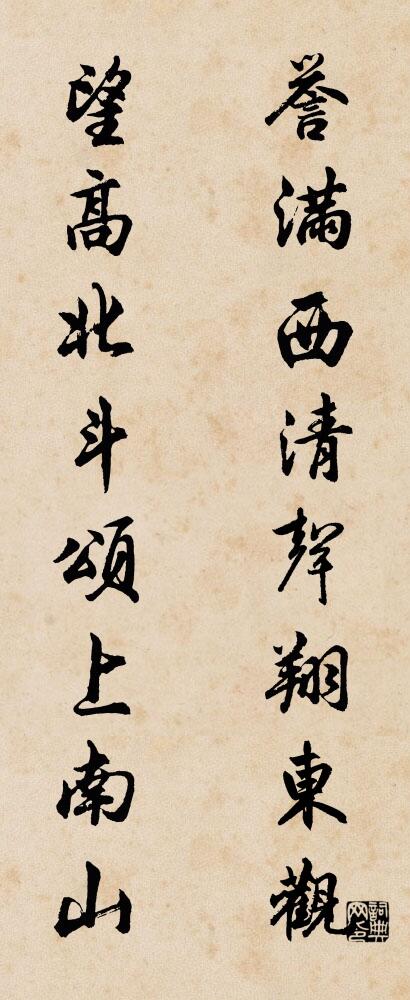 誉滿西清聲翔東觀
望高北斗頌上南山
詞典网印